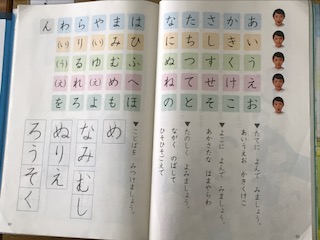 あいうえお
かきくけこ
さしすせそ
たちつてと
なにぬねの
はひふへほ
まみむめも
や(い)ゆ(え)よ
らりるれろ
わ(い)(う)(え)を
ん
▼たてに よんで みましょう。
あいうえお かきくけこ
▼よこに よんで みましょう。
あかさたな はまやらわ
▼たのしく よみましょう。
ながく のばして
ひそひそごえで
▼ことばを みつけましょう。
め
なみむし
ぬりえ
ろうそく